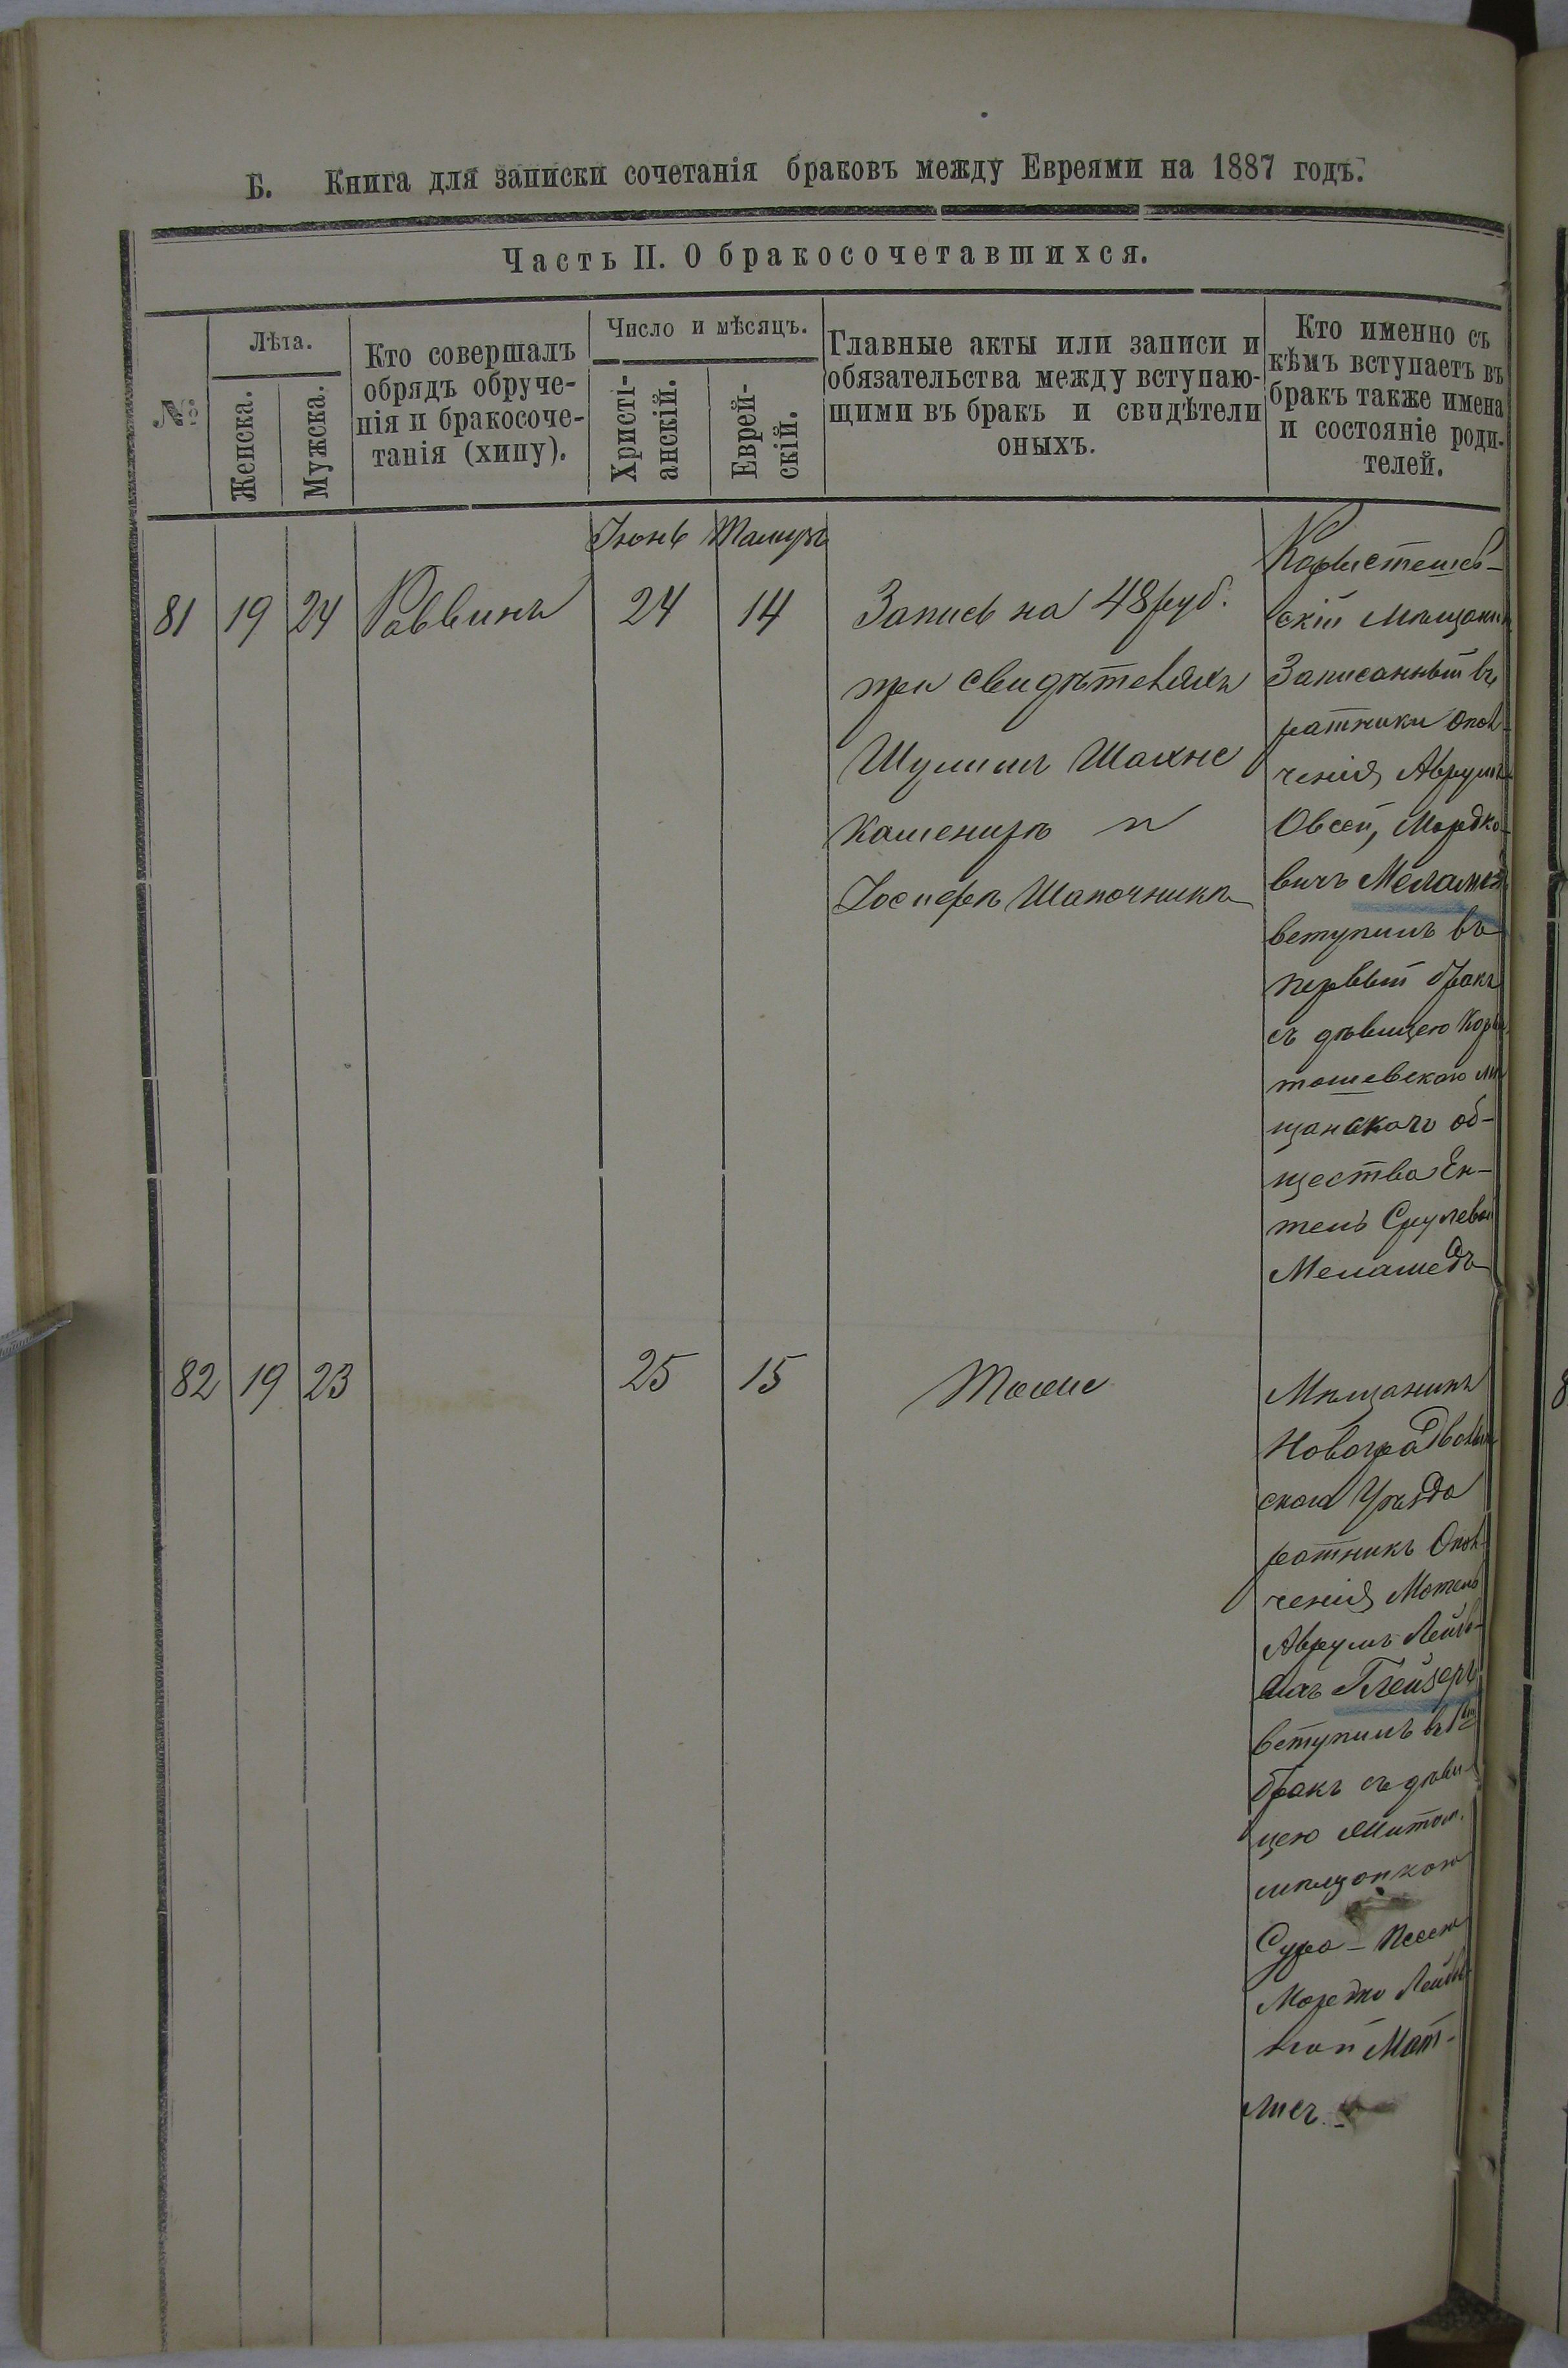 Б. Книга для записки сочетанія браковъ между Евреями на 1887 годъ.
Часть II. О бракосочетавшихся.
№
Лѣта.
Женска.
Мужска.
Кто совершалъ
обрядъ обруче-
нія и бракосоче-
танія (хипу).
Число и мѣсяцъ.
Христі-
анскій.
Еврей-
скій.
Главные акты или записи и
обязательства между вступаю-
щими въ бракъ и свидѣтели
оныхъ.
Кто именно съ
кѣмъ вступаетъ въ
бракъ также имена
и состояніе роди-
телей.
Іюнь Тамузъ
81 19 24 Раввинъ 24 14
Запись на 48 руб.
при свидѣтеляхъ
Шулимъ Шахне
Камениръ и
Іосифъ Шапочникъ
Коростешев-
скій Мѣщанин
Записанный въ
ратники Опол-
ченія Аврумъ
Овсей, Мордко-
вичъ Меламед
вступилъ въ
первый бракъ
съ дѣвицею Коро
тошевскаго мѣ
щанскаго об-
щества Ен-
тель Срулевой
Меламедъ
82 19 23 25 15 Тоже
Мѣщанинъ
Новоградволын
скаго Уѣзда
ратникъ Опол-
ченія Мотель
Аврумъ Лейб-
вичъ Глейзеръ
вступилъ въ 1ый
бракъ съ дѣви-
цею Житом.
мѣщанкою
Сура-Песею
Мордко Лейб-
вой Мат-
лисъ